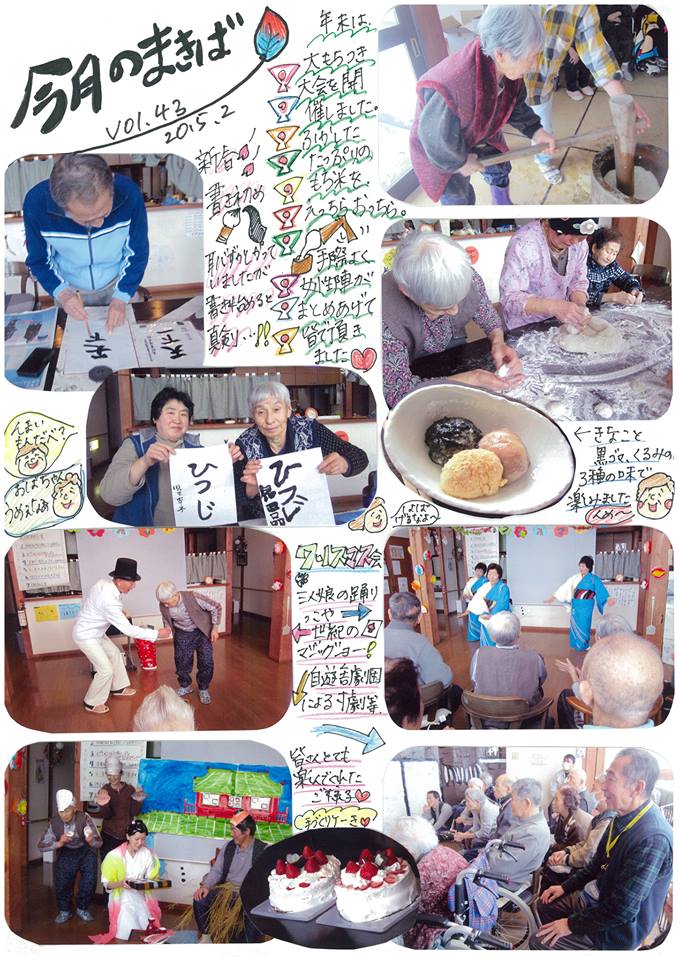 今月のまきば
vol.43
2015.2
年末は、
大もちつき
大会を開
催しました。
ふかした
たっぷりの
もち米を、
えっちらおっちら。
手際よく
女性陣が
まとめあげて
皆で頂き
ました
新春
書き初め
恥ずかしがって
いましたが
書き始めると
真剣…!!
天下
ひつじ
ひつじ
んまい
もんだべ?
おばちゃん
うめぇなぁ
←きなこと
黒ゴマ、くるみの
3種の味で
楽しみました
んめ~
クリスマス会
三人娘の踊り
世紀の
マジックショー!
自遊吉劇団
による寸劇等
皆さんとても
楽しんでくれた
ご様子
手づくりケーキ